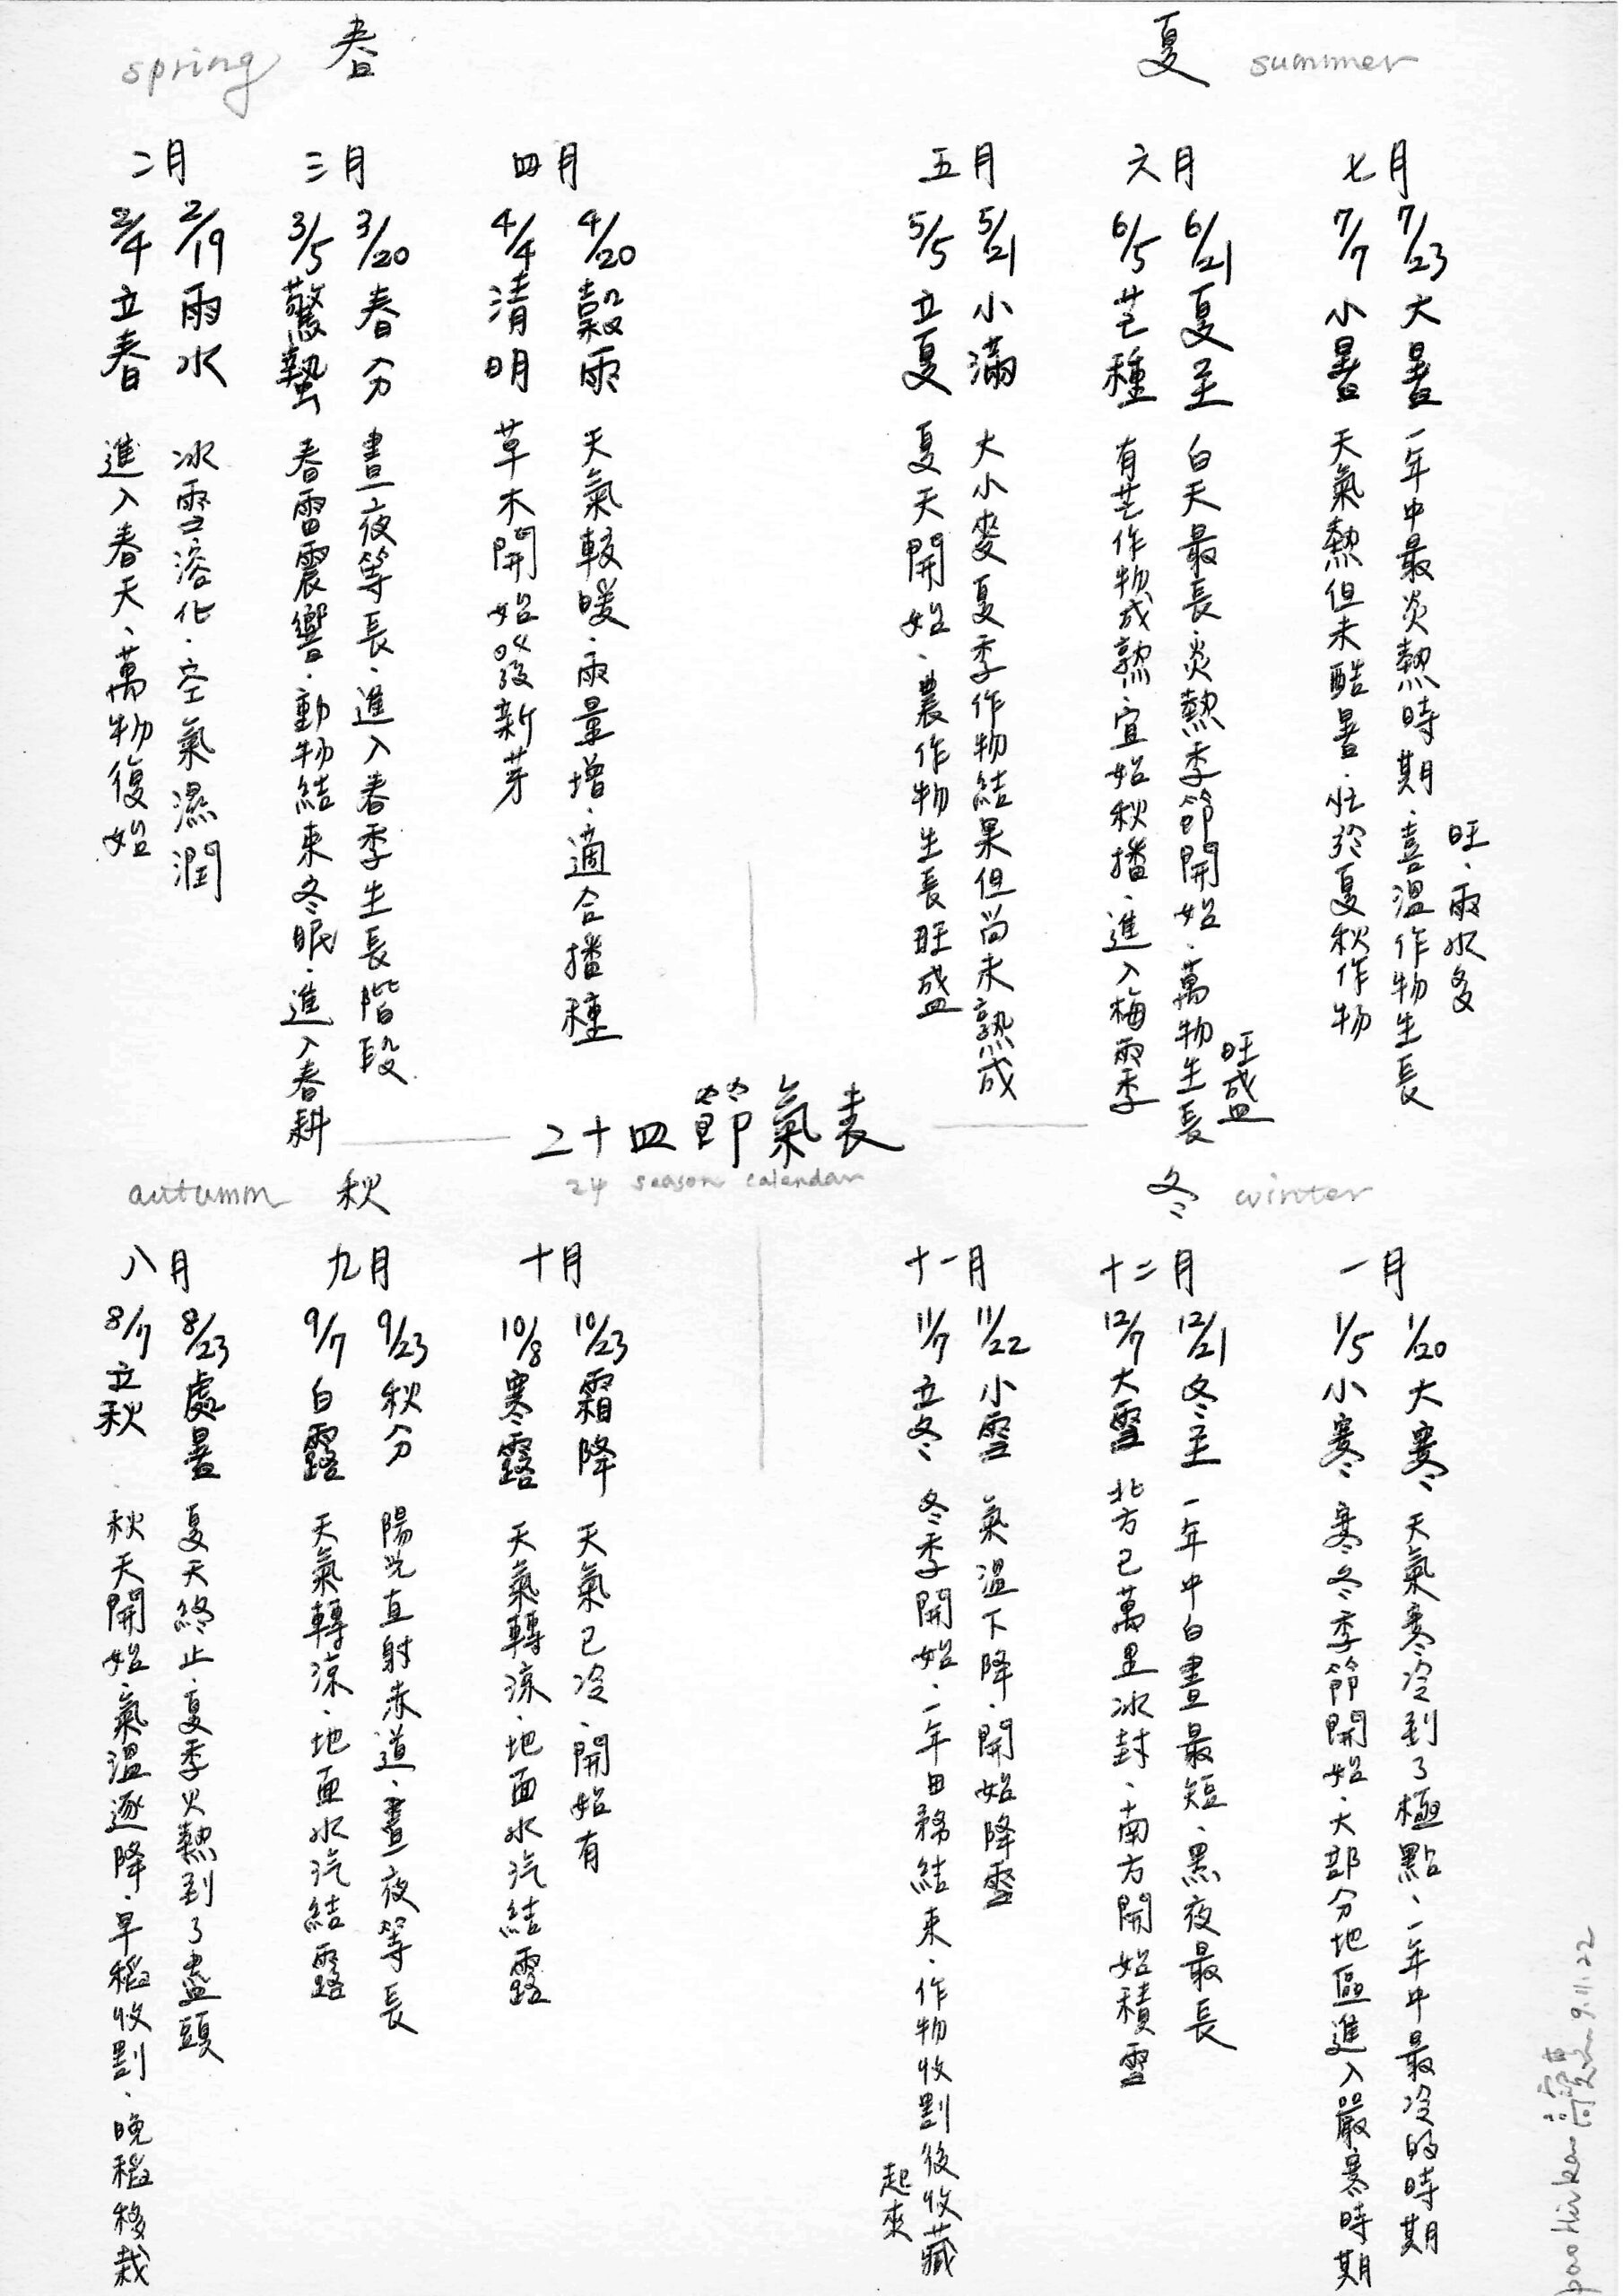 spring 春
二月
2/4 立春 進入春天、萬物復始
2/19 雨水 冰雪溶化、空氣濕潤
三月
3/5 驚蟄 春雷震響、動物結束冬眠、進入春耕
3/20 春分 晝夜等長、進入春季生長階段
四月
4/4 清明 草木開始發新芽
4/20 穀雨 天氣較暖、雨量增、適合播種
夏 summer
五月
5/5 立夏 夏天開始、農作物生長旺盛
5/21 小滿 大小麥夏季作物結果但尚未熟成
六月
6/5 芒種 有芒作物成熟、宜始秋播、進入梅雨季
6/21 夏至 白天最長、炎熱季節開始、萬物生長
旺盛
七月
7/7 小暑 天氣熱但未酷暑、忙於夏秋作物
7/23 大暑 一年中最炎熱時期、喜溫作物生長
旺、雨水多
二十四節氣表
24 season calendar
autumn 秋
八月
8/7 立秋 秋天開始、氣溫逐降、早稻收割、晚稻移栽
8/23 處暑 夏天終止、夏季火熱到了盡頭
九月
9/7 白露 天氣轉涼、地面水汽結露
9/23 秋分 陽光直射赤道、晝夜等長
十月
10/8 寒露 天氣轉涼、地面水汽結露
10/23 霜降 天氣已冷、開始有
冬 winter
十一月
11/7 立冬 冬季開始、一年田務結束、作物收割後收藏
起來
11/22 小雪 氣溫下降、開始降雪
十二月
12/7 大雪 北方已萬里冰封、南方開始積雪
12/21 冬至 一年中白晝最短、黑夜最長
一月
1/5 小寒 寒冬季節開始、大部分地區進入嚴寒時期
1/20 大寒 天氣寒冷到了極點、一年中最冷的時期